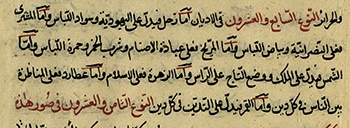 والحراز النوع السابع والعشرون في الاديان اما زحل فيدل على اليهودية وسواد اللباس واما المشترى
فعلى النصرانية وبياض اللباس واما المريخ فعلى عبادة الاصنام وشرب الخمر وحمرة اللباس واما
الشمس فيدل على الملك ووضع التاج على الراس واما الزهرة فعلى الاسلام واما عطارد فعلى المناظرة
بين الناس في كل دين واما القمر فيدل على التدين في كل دين النوع الثامن والعشرون في صور هذه